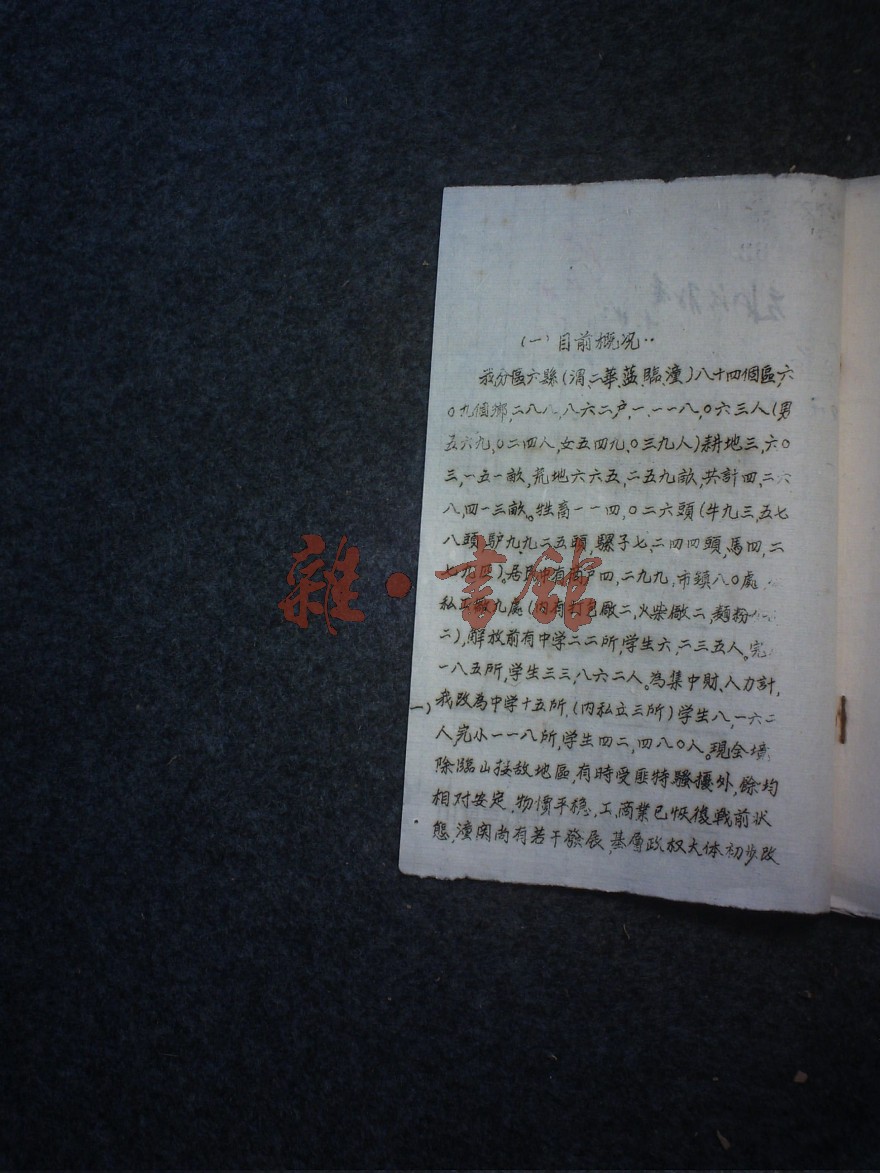 (一)目前概况：
我分區六縣(渭、二華、蓝、臨、潼)八十四個區,六
〇九個鄉,二八八,八六二户,一,一一八,〇六三人(男
五六九,〇二四人,女五四九,〇三九人)耕地三,六〇
三,一五一畝,荒地六六五,二五九畝,共計四,二六
八,四一三畝。牲畜一一四,〇二六頭(牛九三,五七
八頭,馿九,九二五頭,騾子七,二四四頭,馬四,二
七九匹)。居民中有商户四,二九九,市鎮八〇處,
私工廠九處(内有打包廠二,火柴廠二,麵粉
二),解放前有中学二二所,学生六,二三五人。完
一八五所,学生三三,八六二人。為集中財、人力計,
我改為中学十五所,(内私立三所)学生八,一六二
人,完小一一八所,学生四二,四八〇人。現全境
除臨山接敌地區,有時受匪特騷擾外,餘均
相对安定,物價平稳,工、商業已恢復战前状
態,潼関尚有若干發展,基層政权大体初步改
一)
雜·書館